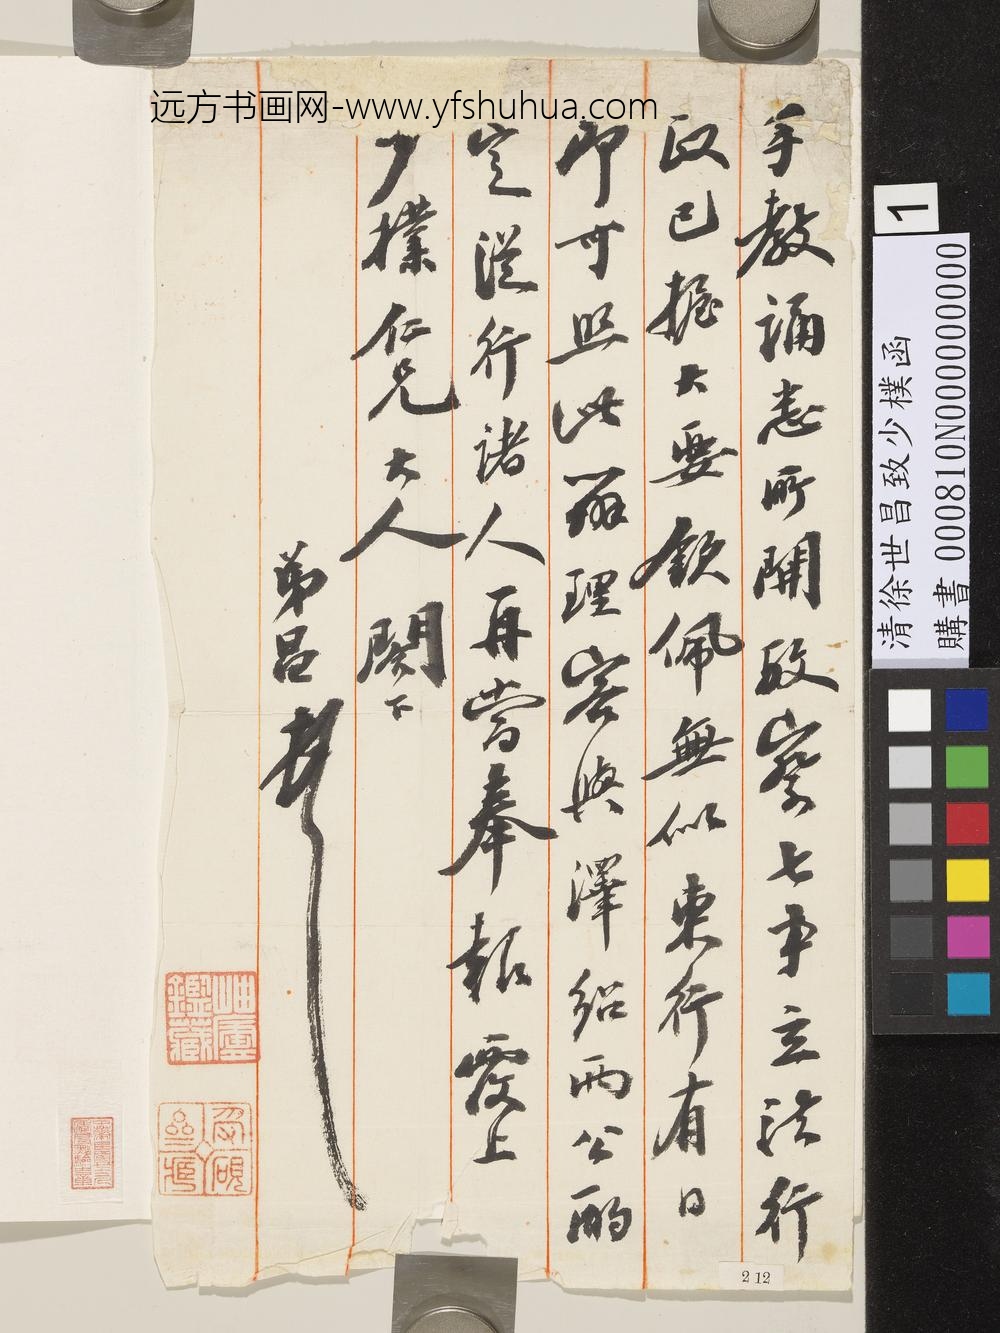 远方书画网-www.yfshuhua.com
手教誦悉所開攷察七事立法行
政已握大要欽佩無似東行有日
即可照此辦理容與澤紹兩公酌
定從行諸人再當奉報覆上
少樸仁兄大人閣下
弟昌
岫廬鑑藏
212
1
清徐世昌致少樸函
購書 000810N000000000